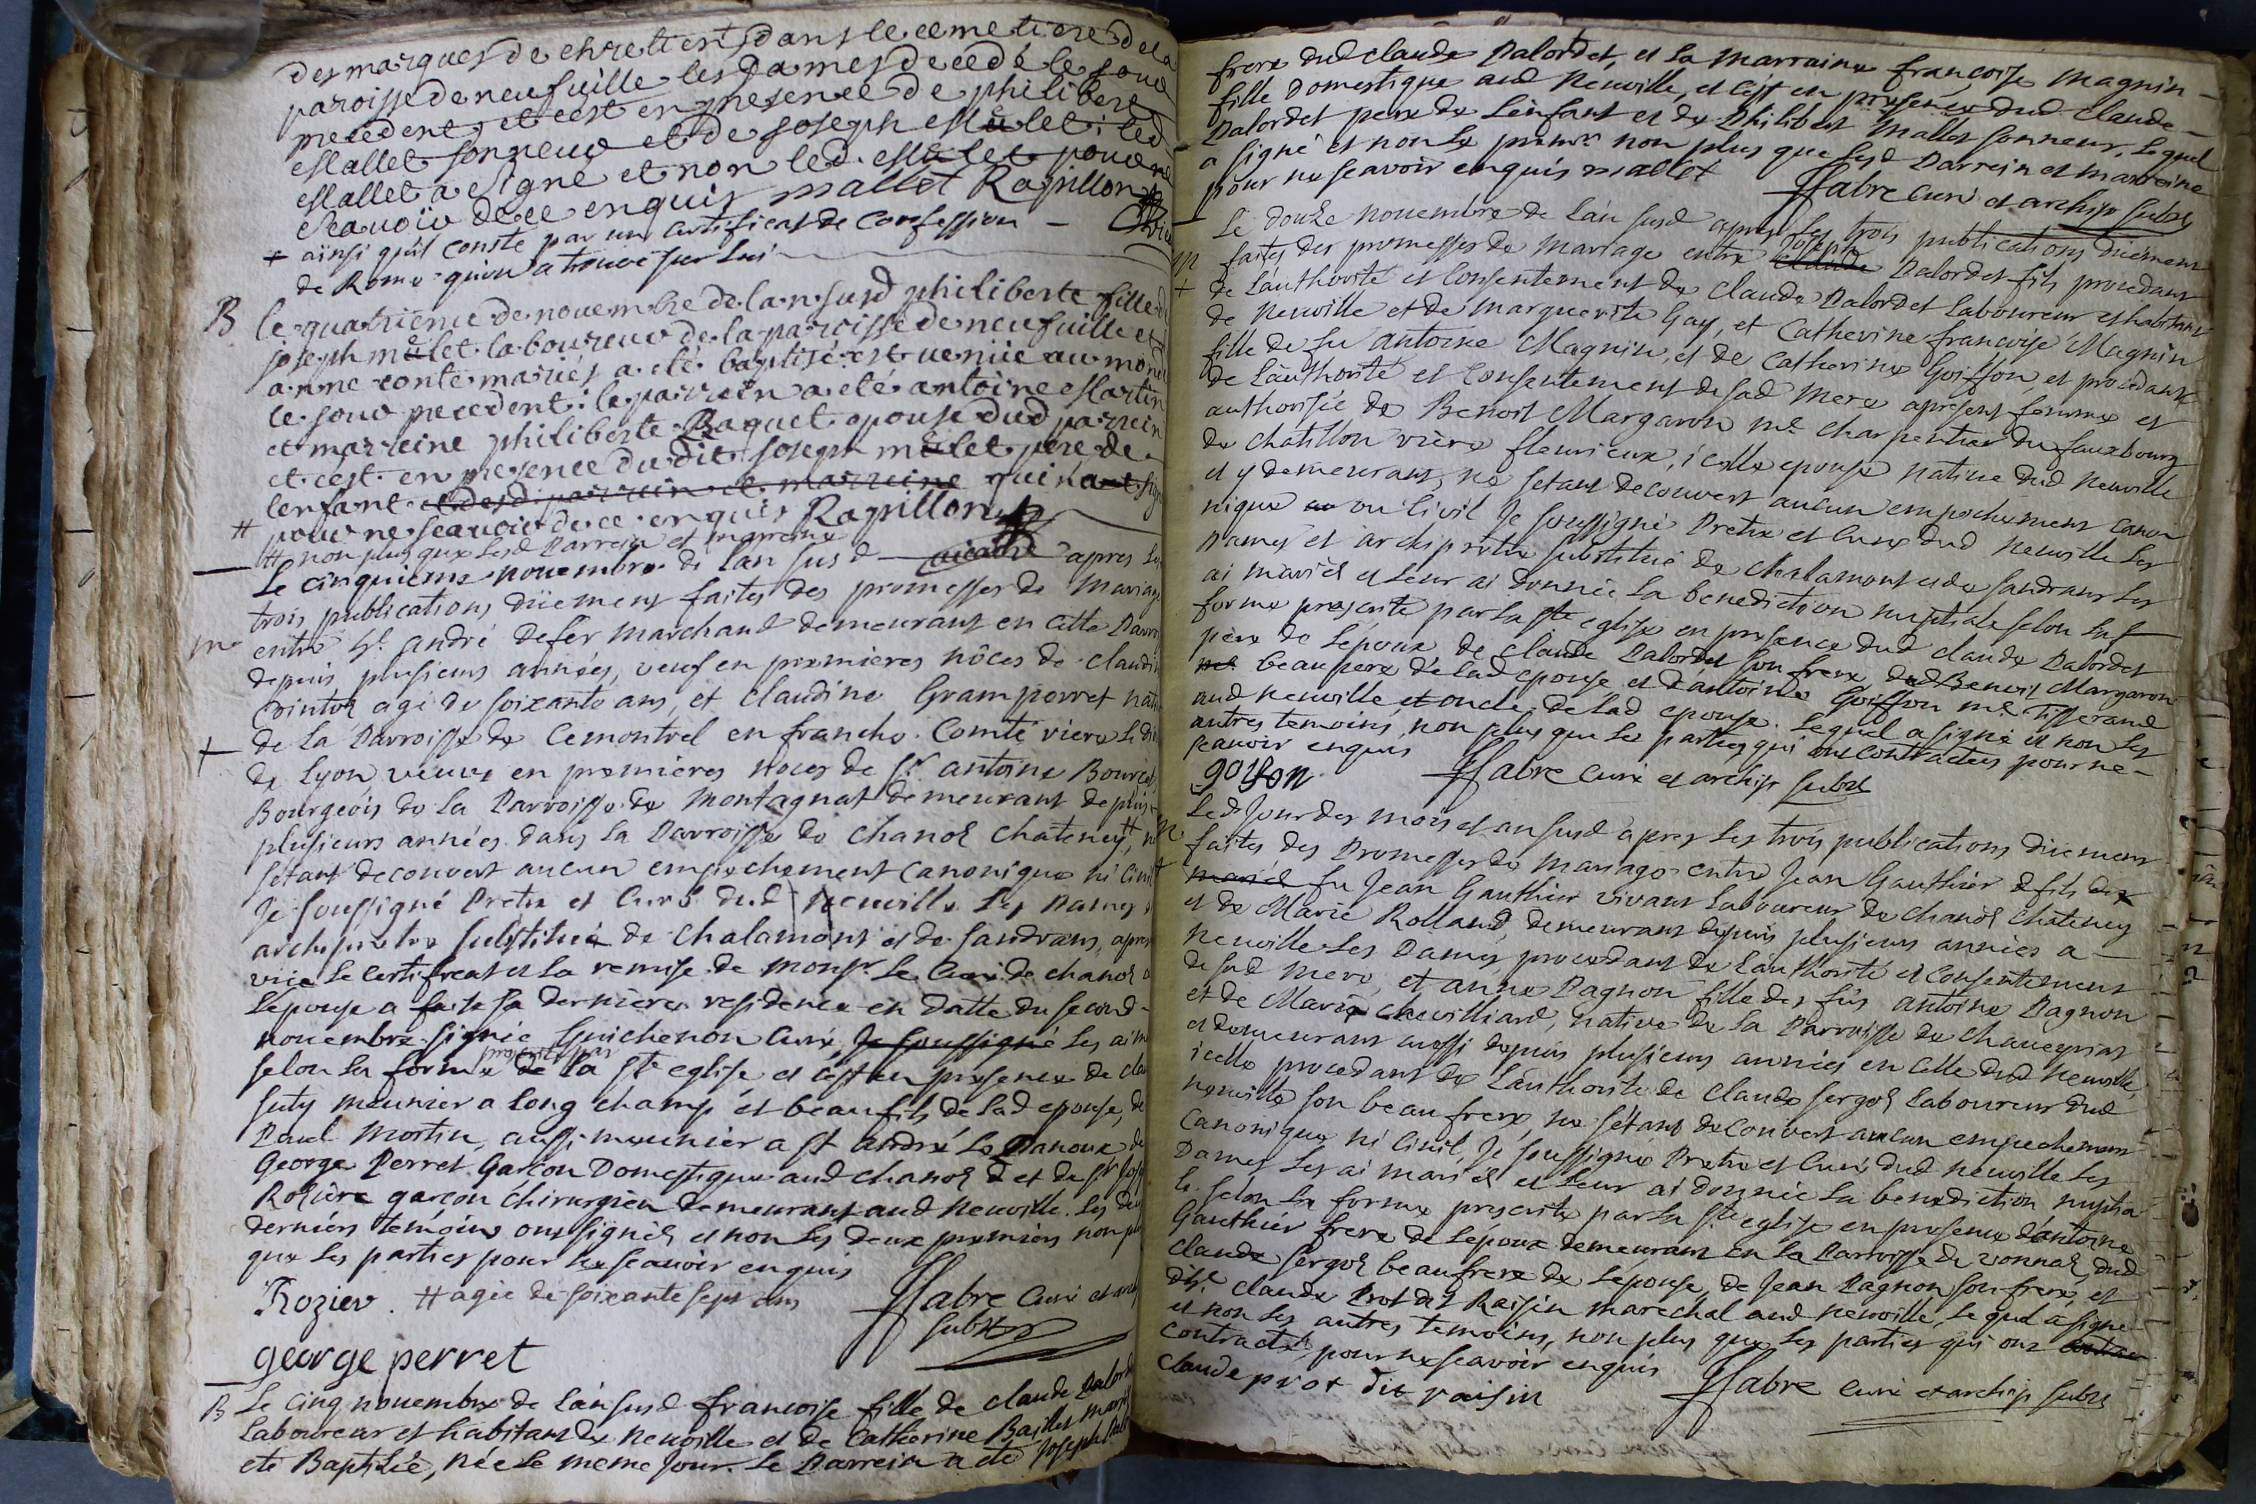 des marques de chretient dans le cemetiere de la
paroisse de neufuille les Dames decedé le jour
precedent, et c'est en presence de philibert
Mallet sonneur et de joseph Mulet; led
Mallet a signé et non led. Mulet pour ne
scavoir de ce enquis mallet Rapillon
+ ainsi quil conste par un certificat de confession
de Rome quon a trouvé sur lui
B le quatrieme de nouembre de l.an susd philiberte fille
joseph mulet laboureur de la paroisse de neufuille et
anne conte mariés a eté baptisé est venue au mon
le jour precedent: le parrein a eté antoine Martin
et marreine philiberte Raquet epouse dud parrein
et c'est en presence du dit joseph mulet pere de
lenfant et desd. parrein et marreine qui n'a sig
# pour ne scauoir de ce enquis Rapillon
# non plus que lesd Parrein et marreine vicaire
Le cinquieme nouembre de lan susd apres les
trois publications düement faites des promesses de Mariage
m entre Sr. andré defer marchand demeurant en cette Parr
depuis plusieurs années, veuf en premieres nôces de Claudi
agé de soixante ans, et Claudine Gramperret nati
+ de La Parroisse de Cemontrel en franche Comté viere le di
de Lyon veuve en premieres noces de Sr. antoine
Bourgeois de La Parroisse de Montagnat demeurant depuis
plusieurs années dans la Parroisse de chanoz chateney #, ne
s'etant decouvert aucun empechement Canonique ni Civil
Je soussigné Pretre et Curé dud neuville Les Dames
archipretre substitué de Chalamont et de Sandrans, apres
vüe le certificat et la remise de monsr. Le Curé de chanoz
Lepouse a fait sa derniere residence en datte du second
nouembre signé Guichenon Curé, Je soussigné Les ai m
selon la forme prescrite par de la Ste eglise et c'est en presence de cla
suty meunier a Long champ et beaufils de Lad epouse, de
Paul Mortin, aussi meunier a St andré Le Panoux de
George Perret Garçon Domestique aud chanoz et de Sr jose
Roziere garçon chirurgien demeurant aud neuville. Les deux
derniers temoins ont signéz et non Les deux premiers non plus
que Les parties pour ne scauoir enquis
Rozier # agée de soixante sept ans ffabre Curé et arch
subst
george perret
B Le cinq nouembre de Lan susd francoise fille de claude Palord
Laboureur et habitant de neuville et de Catherine Baillet mari
eté Baptisée, née Le meme jour. Le Parrein a eté joseph Pal
frere dud claude Palordet, et La marraine françoise magnin
fille Domestique aud neuville, et c'est en presence dud claude
Palordet pere de L'enfant et de Philibert Mallet sonneur, Lequel
a signé et non Le premr. non plus que Lesd Parrein et marreine
pour ne scavoir enquis mallet ffabre Curé et archip subst
Le douze nouembre de Lan susd apres Les trois publications düement
m faites des promesses de mariage entre claude joseph Palordet fils procedant
+ de Lauthorité et Consentement de claude Palordet Laboureur et habitant
de neuville et de marguerite Gay, et Catherine françoise Magnin
fille de fu antoine Magnin, et de Catherine Goiffon, et procedante
de Lauthorité et Consentement de sad mere apresent femme et
authorisée de Benoit Margaron me. charpentier du fauxbourg
de chatillon viere fleurieux, icelle epouse native dud neuville
et y demeurant, ne setant decouvert aucun empechement canon
nique ou Civil Je soussigné Pretre et Curé dud neuville Les
Dames et archipretre substitué de Chalamont et de Sandrans Les
ai mariéz et Leur ai donnée La benediction nuptiale selon La
forme prescrite par La Ste eglise en presence dud claude Palordet
pere de Lepoux de claude Palordet son frere, dud Benoit Margaron
beaupere de Lad epouse et d'antoine Goiffon me. Tisserand
aud neuville et oncle de Lad epouse. Lequel a signé et non Les
autres temoins non plus que Les parties qui ont contractées pour ne
scavoir enquis ffabre Curé et archip subst
goifon
Led jour des mois et an susd apres Les trois publications düement
m faites des Promesses de mariage entre Jean Gauthier fils de
+ mariéz fu Jean Gauthier vivant Laboureur de chanoz chateney
et de Marie Rolland, demeurant depuis plusieurs années a
neuville Les Dames procedant de Lauthorité et Consentement
de sad mere, et anne Pagnon fille des fus antoine Pagnon
et de Marie chevilliard, native de La Parroisse de chaveyriat
et demeurant aussi depuis plusieurs années en celle dud neuville,
icelle procedant de Lauthorité de claude sergoz Laboureur dud
neuville son beau frere, ne s'etant decouvert aucun empechement
Canonique ni Civil, Je soussigné Pretre et Curé dud neuville Les
Dames Les ai mariéz et Leur ai donnée La benediction nuptia
le selon La forme prescrite par La Ste eglise en presence d'antoine
Gauthier frere de L'epoux demeurant en La Parroisse de vonnaz, dud
claude sergoz beaufrere de Lepouse, de jean Pagnon son frere, et
de claude Prot dit Raisin marechal aud neuville, Lequel a signé
et non Les autres temoins, non plus que Les parties qui ont
contracté pour ne scavoir enquis ffabre Curé et archip subst
claude prot dit raisin